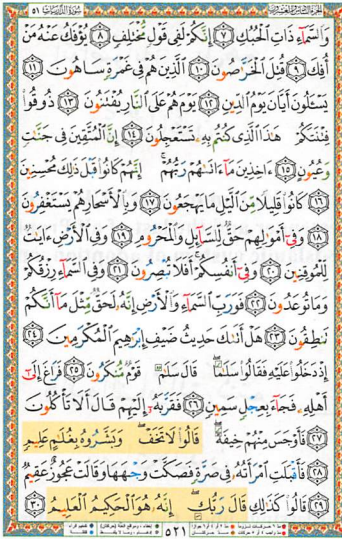 سُورَةُ الذَّارِيَات ٥١
وَٱلسَّمَآءِ ذَاتِ ٱلْحُبُكِ ٧ إِنَّكُمْ لَفِى قَوْلٍ مُّخْتَلِفٍ ٨ يُؤْفَكُ عَنْهُ مَنْ
أُفِكَ ٩ قُتِلَ ٱلْخَرَّٰصُونَ ١٠ ٱلَّذِينَ هُمْ فِى غَمْرَةٍ سَاهُونَ ١١
يَسْـَٔلُونَ أَيَّانَ يَوْمُ ٱلدِّينِ ١٢ يَوْمَ هُمْ عَلَى ٱلنَّارِ يُفْتَنُونَ ١٣ ذُوقُوا۟
فِتْنَتَكُمْ هَٰذَا ٱلَّذِى كُنتُم بِهِۦ تَسْتَعْجِلُونَ ١٤ إِنَّ ٱلْمُتَّقِينَ فِى جَنَّٰتٍ
وَعُيُونٍ ١٥ ءَاخِذِينَ مَآ ءَاتَىٰهُمْ رَبُّهُمْ ۚ إِنَّهُمْ كَانُوا۟ قَبْلَ ذَٰلِكَ مُحْسِنِينَ
١٦ كَانُوا۟ قَلِيلًا مِّنَ ٱلَّيْلِ مَا يَهْجَعُونَ ١٧ وَبِٱلْأَسْحَارِ هُمْ يَسْتَغْفِرُونَ
١٨ وَفِىٓ أَمْوَٰلِهِمْ حَقٌّ لِّلسَّآئِلِ وَٱلْمَحْرُومِ ١٩ وَفِى ٱلْأَرْضِ ءَايَٰتٌ
لِّلْمُوقِنِينَ ٢٠ وَفِىٓ أَنفُسِكُمْ ۚ أَفَلَا تُبْصِرُونَ ٢١ وَفِى ٱلسَّمَآءِ رِزْقُكُمْ
وَمَا تُوعَدُونَ ٢٢ فَوَرَبِّ ٱلسَّمَآءِ وَٱلْأَرْضِ إِنَّهُۥ لَحَقٌّ مِّثْلَ مَآ أَنَّكُمْ
تَنطِقُونَ ٢٣ هَلْ أَتَىٰكَ حَدِيثُ ضَيْفِ إِبْرَٰهِيمَ ٱلْمُكْرَمِينَ ٢٤
إِذْ دَخَلُوا۟ عَلَيْهِ فَقَالُوا۟ سَلَٰمًا ۖ قَالَ سَلَٰمٌ قَوْمٌ مُّنكَرُونَ ٢٥ فَرَاغَ إِلَىٰٓ
أَهْلِهِۦ فَجَآءَ بِعِجْلٍ سَمِينٍ ٢٦ فَقَرَّبَهُۥٓ إِلَيْهِمْ قَالَ أَلَا تَأْكُلُونَ
٢٧ فَأَوْجَسَ مِنْهُمْ خِيفَةً ۖ قَالُوا۟ لَا تَخَفْ ۖ وَبَشَّرُوهُ بِغُلَٰمٍ عَلِيمٍ
٢٨ فَأَقْبَلَتِ ٱمْرَأَتُهُۥ فِى صَرَّةٍ فَصَكَّتْ وَجْهَهَا وَقَالَتْ عَجُوزٌ عَقِيمٌ
٢٩ قَالُوا۟ كَذَٰلِكِ قَالَ رَبُّكِ ۖ إِنَّهُۥ هُوَ ٱلْحَكِيمُ ٱلْعَلِيمُ ٣٠
٥٢١